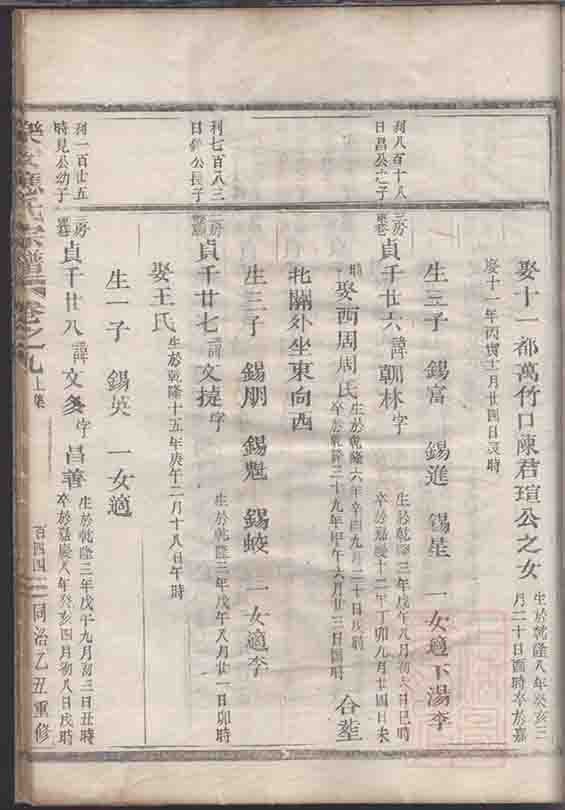 娶十一都萬竹口陳君瑄公之女
生於乾隆八年癸亥三
月二十日酉時卒於嘉
慶十一年丙寅十一月廿四日辰時
生三子 錫富 錫進 錫星 一女適下湯李
利八百十八
日昌公之子
三房
貞千廿六諱朝林字
生於乾隆三年戊午八月初六日巳時
卒於嘉慶十二年丁卯九月十四日未
時
娶西周周氏
生於乾隆六年辛酉九月二十日戌時
卒於乾隆三十九年甲午六月廿三日酉時
合塟
北關外坐東向西
生三子 錫朋 錫魁 錫蛟 一女適李
利七百八三
二房
貞千廿七諱文提字
生於乾隆三年戊午八月廿一日卯時
娶王氏
生於乾隆十五年庚午二月十八日午時
生一子 錫英 一女適
利一百廿五
時見公幼子
三房
貞千廿八諱文多字昌善
生於乾隆三年戊午九月初三日丑時
卒於嘉慶八年癸亥四月初八日戌時
應氏宗譜 卷之九上集
百四四
同治乙丑重修